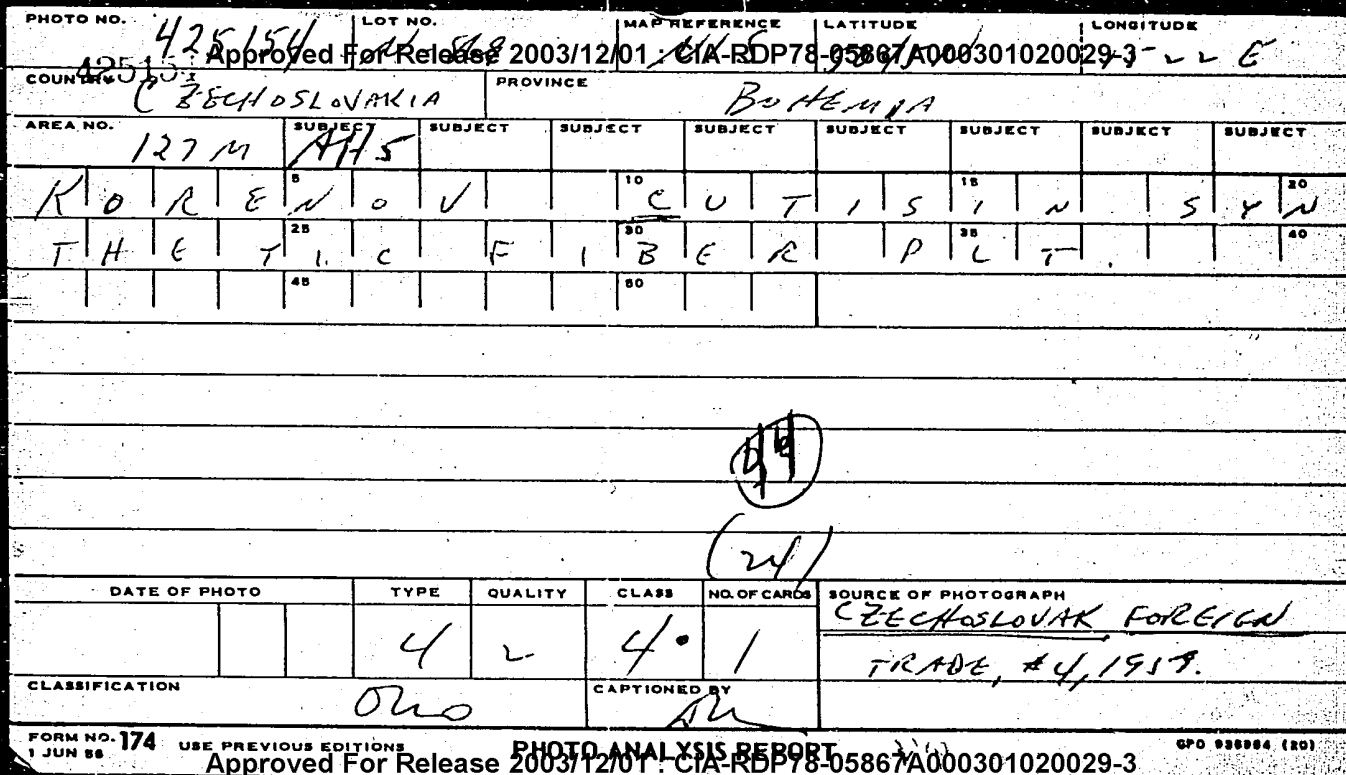 PHOTO NO. LOT NO. MAP REFERENCE LATITUDE LONGITUDE
425154 E
Approved For Release 2003/12/01 : CIA-RDP78-05867A000301020029-3
COUNTRY CZECHOSLOVAKIA PROVINCE BOHEMIA
AREA NO. SUBJECT SUBJECT SUBJECT SUBJECT SUBJECT SUBJECT SUBJECT SUBJECT
127 M AH5
5 10 15 20
KORENOV CUTISIN SYN
25 30 35 40
THETIC FIBER PLT.
45 50
(24)
DATE OF PHOTO TYPE QUALITY CLASS NO. OF CARDS SOURCE OF PHOTOGRAPH
4 2 4 1 CZECHOSLOVAK FOREIGN
TRADE, #4, 1959.
CLASSIFICATION CAPTIONED BY
FORM NO. 174 USE PREVIOUS EDITIONS PHOTO ANALYSIS REPORT GPO 936984 (20)
1 JUN 58
Approved For Release 2003/12/01 : CIA-RDP78-05867A000301020029-3